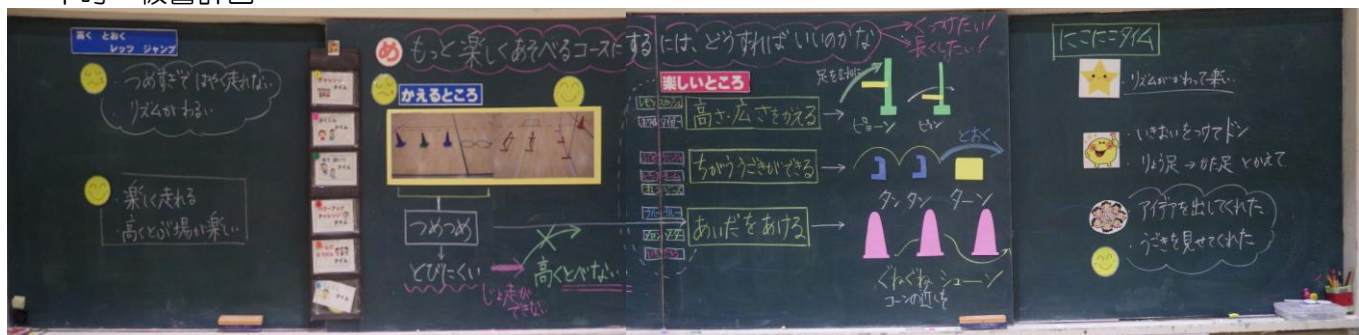 本時の板書計画
高く とおく
レッツ ジャンプ
・つめすぎで はやく走れない
・リズムがわるい
・楽しく走れる
・高くとぶ場が楽しい
め もっと楽しくあそべるコースにするには、どうすればいいのかな
くっつけたい！
長くしたい！
かえるところ
つめつめ
とびにくい
じょ走ができない
高くとべない
楽しいところ
高さ・広さをかえる
ピョーン
ピョン
ちがううごきができる
とおく
タンタン ターン
あいだをあける
ぐねぐね シューン
コーンの近くを
にこにこタイム
・リズムがかわって楽しい
・いきおいをつけてドン
・りょう足→かた足 とかえて
・アイデアを出してくれた
・うごきを見せてくれた